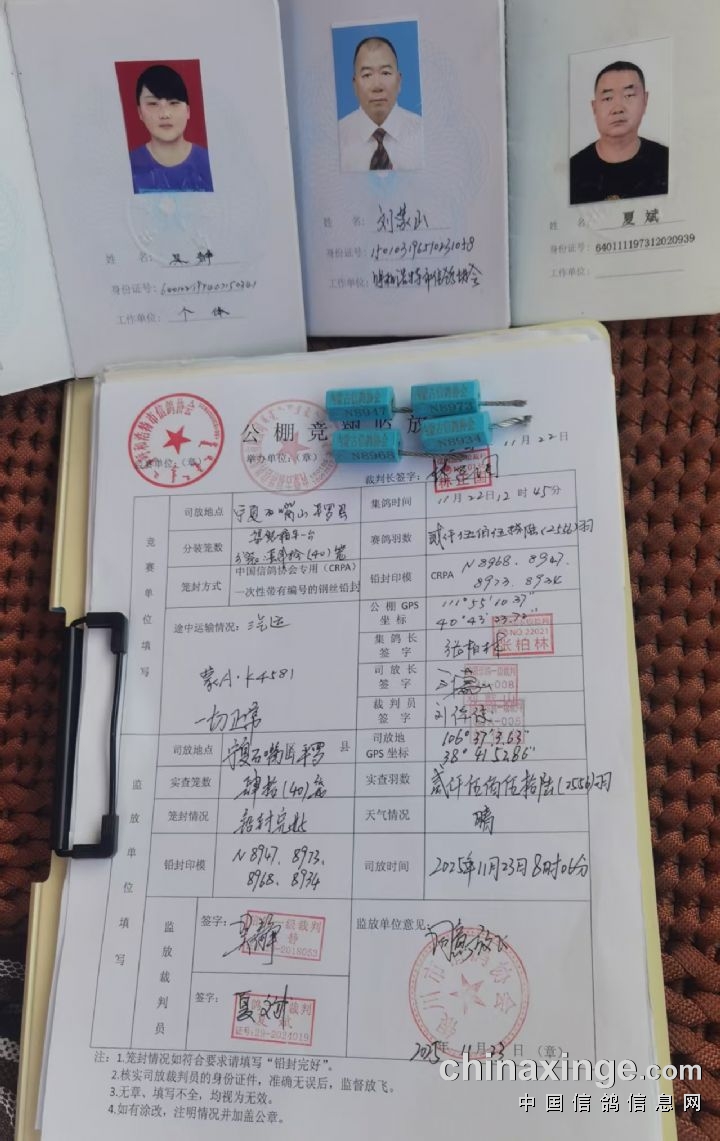 姓 名:
身份证号:
工作单位: 个体
姓 名: 刘蒙山
身份证号:
工作单位: 呼和浩特市信鸽协会
姓 名: 夏斌
身份证号: 640111197312020939
工作单位:
内蒙古信鸽协会
N8947
内蒙古信鸽协会
N8973
内蒙古信鸽协会
N8968
内蒙古信鸽协会
N8934
呼和浩特市信鸽协会
公棚竞翔监放
竞赛单位:(章)
举办单位:(章)
11月22日
裁判长签字:
竞赛单位填写
司放地点 宁夏石嘴山平罗县
集鸽时间 11月22日12时45分
分装笼数
赛鸽羽数 贰仟伍佰伍拾陆(2556)羽
笼封方式 中国信鸽协会专用(CRPA)
一次性带有编号的钢丝铅封
铅封印模 CRPA N8968、8947
8973、8934
途中运输情况: 汽运
蒙A·K4581
一切正常
公棚GPS坐标 111°55′10.37″
40°43′23.72″
集鸽长签字 张柏林
张柏林
司放长签字
裁判员签字
监放单位填写
司放地点 宁夏石嘴山平罗县
司放地GPS坐标 106°37′3.63″
38°41′52.86″
实查笼数 肆拾(40)笼
实查羽数 贰仟伍佰伍拾陆(2556)羽
笼封情况 铅封完好
天气情况 晴
铅封印模 N8947、8973、
8968、8934
司放时间 2025年11月23日8时06分
监放裁判员
签字: 吴静
一级裁判
静
-2018053
签字: 夏斌
裁判
证号:29-2024019
监放单位意见: 同意放飞
银川市信鸽协会
2025年11月23日(章)
注: 1.笼封情况如符合要求请填写“铅封完好”。
2.核实司放裁判员的身份证件，准确无误后，监督放飞。
3.无章、填写不全，均视为无效。
4.如有涂改，注明情况并加盖公章。
chinaxinge.com
中国信鸽信息网